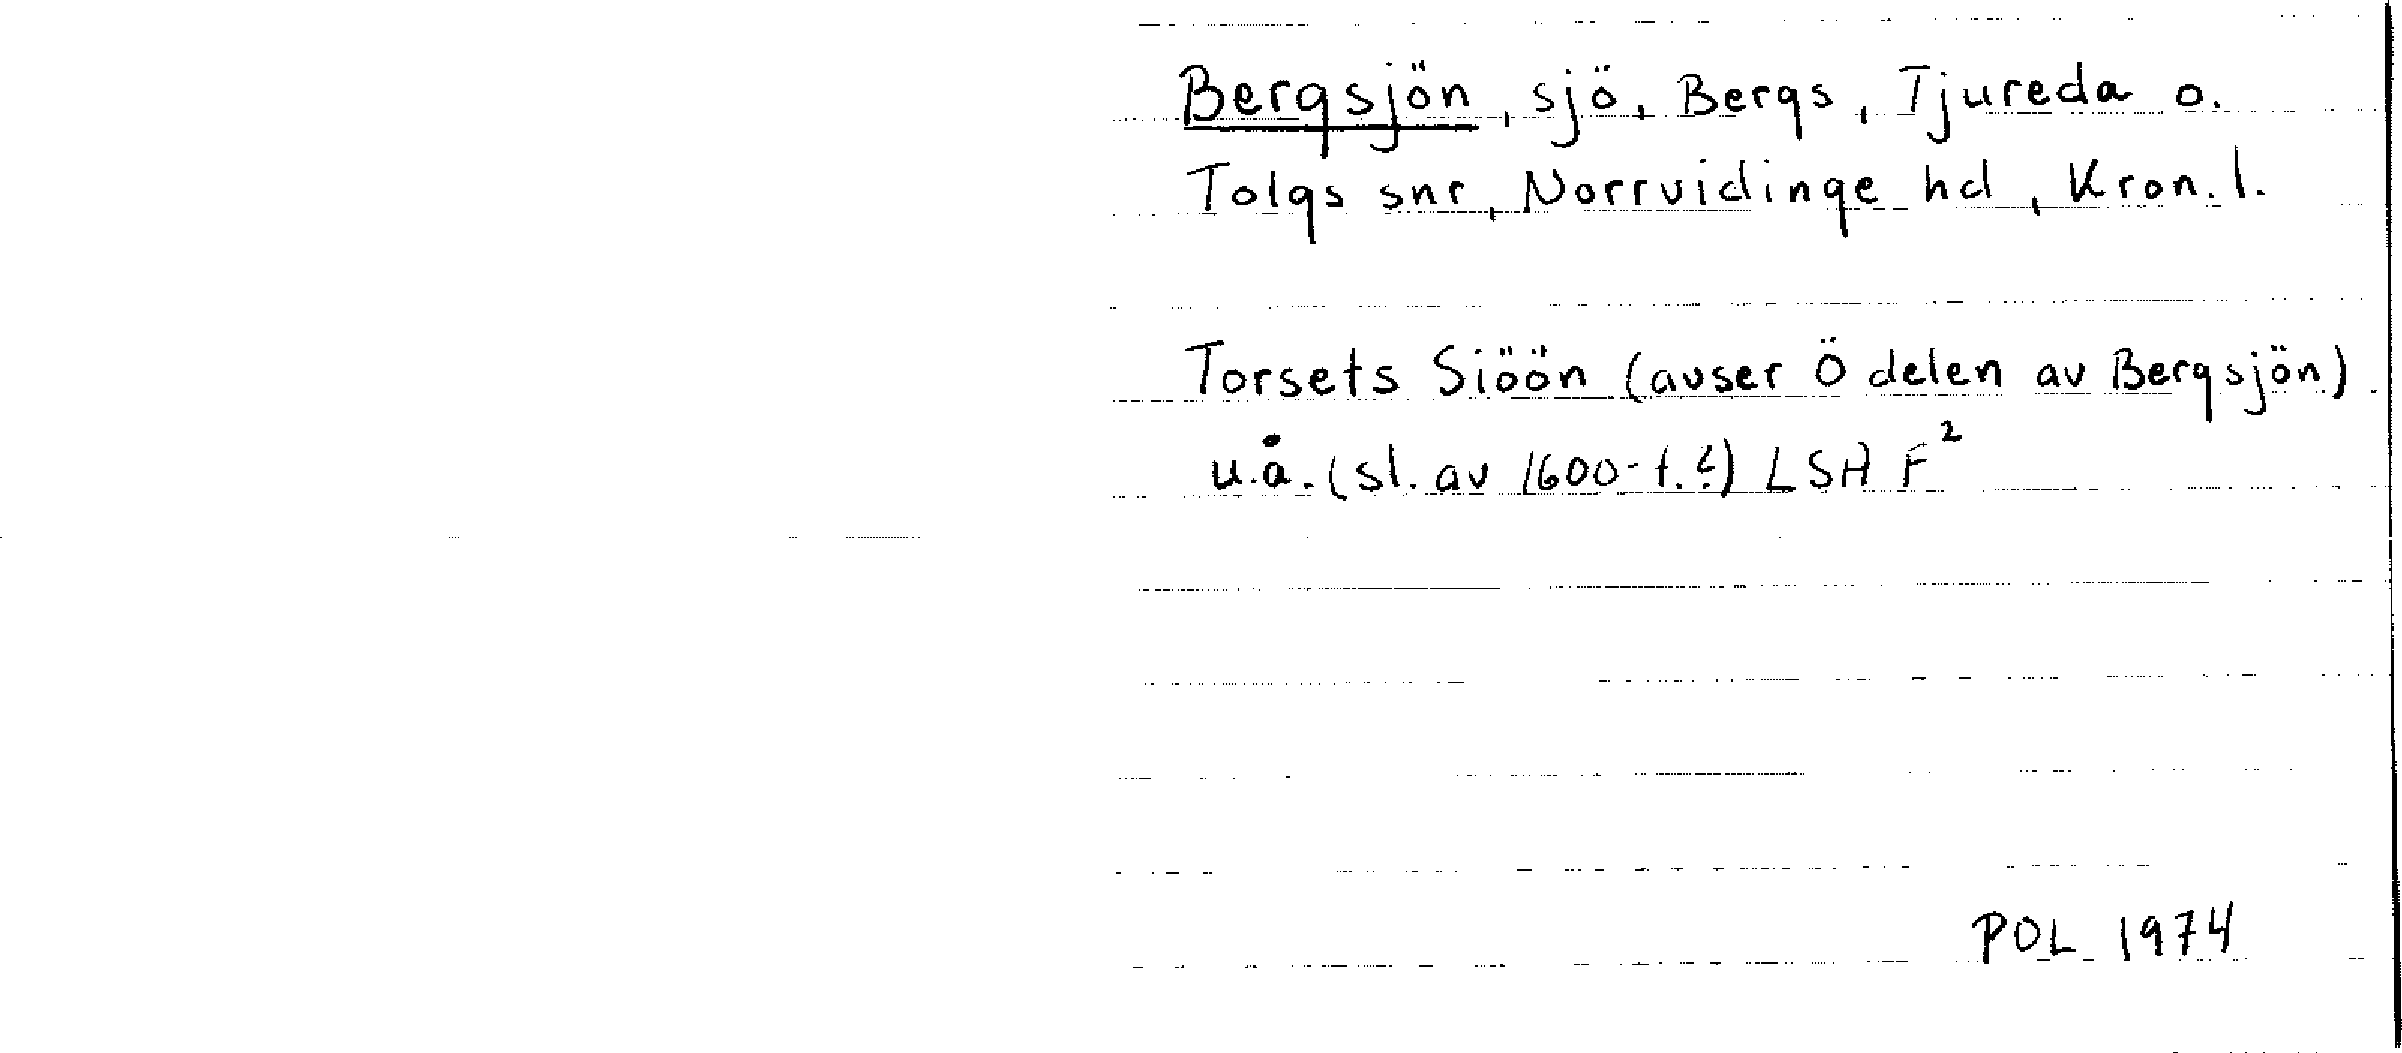 Bergsjön, sjö, Bergs, Tjureda o.
Tolgs snr, Norrvidinge hd, Kron. l.
Torsets Siöön (avser Ö delen av Bergsjön)
u.å. (sl. av 1600-t.?) LSA F²
POL 1974